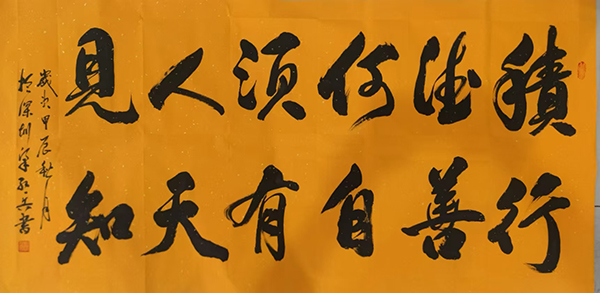 積德何須人見
行善自有天知
歲次甲辰秋月
於深圳書